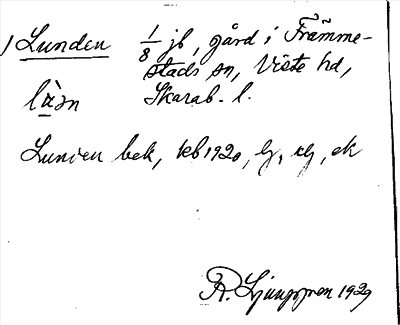 1 Lunden 1/8 jb, gård i Främme-
stads sn, Viste hd,
Skarab. l.
Lunden bek, kb 1920,
R. Ljunggren 1929